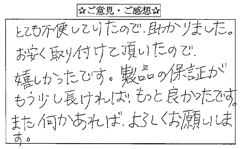 ☆ご意見・ご感想☆
とても不便していたので、助かりました。
お安く取り付けて頂いたので
嬉しかったです。製品の保証が
もう少し長ければ、もっと良かったです。
また何かあれば、よろしくお願いしま
す。